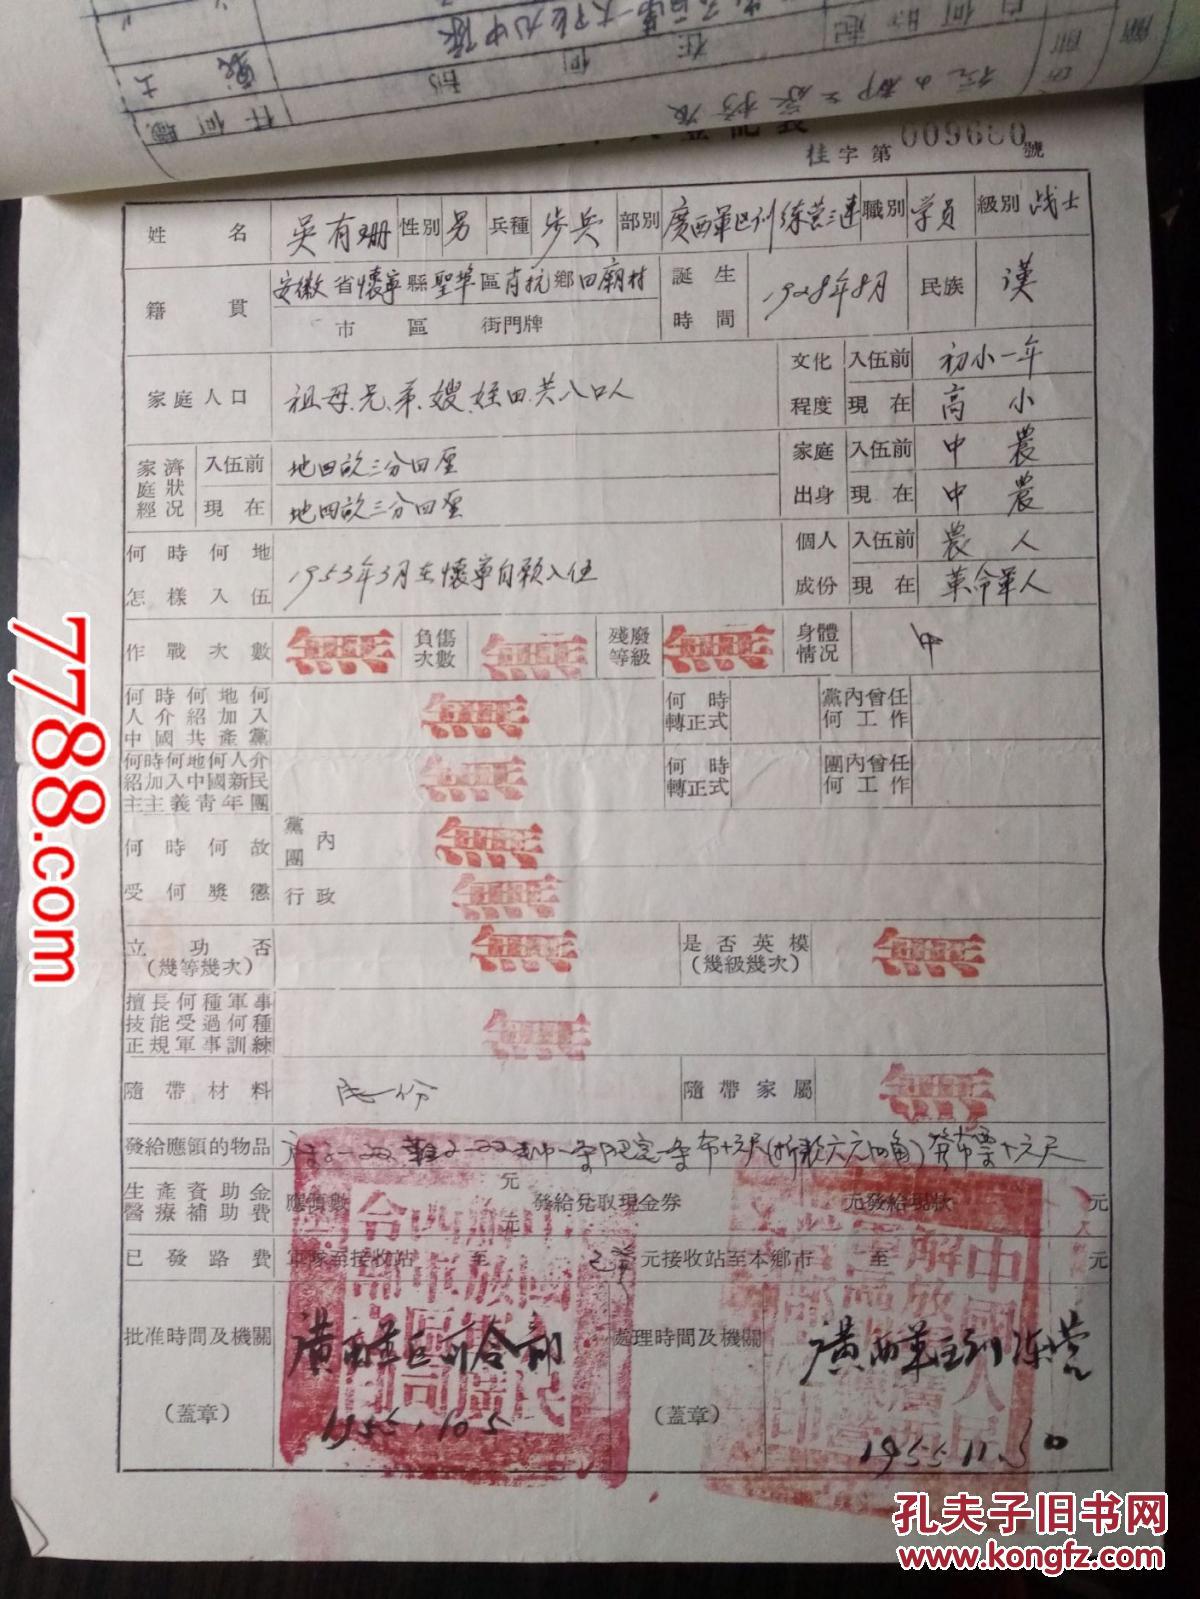 任何職
戰士
桂字第009680號
姓名 吳有珊 性別 男 兵種 步兵 部別 廣西軍區訓練营三連 職別 学员 級別 战士
籍貫 安徽省懷寧縣聖埠區肖坑鄉田廟村 誕生時間 1928年8月 民族 漢
市 區 街門牌
家庭人口 祖母.兄.弟.嫂.姪.田.共八口人
文化程度 入伍前 初小一年
現在 高小
家庭經濟狀况 入伍前 地四畝三分四厘
現在 地四畝三分四厘
家庭出身 入伍前 中農
現在 中農
何時何地怎樣入伍 1953年3月在懷寧自願入伍
個人成份 入伍前 農人
現在 革命軍人
作戰次數 無 負傷次數 無 殘廢等級 無 身體情况 中
何時何地何人介紹加入中國共產黨 無 何時轉正式 黨內曾任何工作
何時何地何人介紹加入中國新民主主義青年團 無 何時轉正式 團內曾任何工作
何時何故受何獎懲 黨團內 無
行政 無
立功否(幾等幾次) 無 是否英模(幾級幾次) 無
擅長何種軍事技能受過何種正規軍事訓練 無
隨帶材料 一份 隨帶家屬 無
發給應領的物品
生產資助金醫療補助費 應領數 元 發給兌取現金券 元發給現款 元
已發路費 軍隊至接收站 至 元接收站至本鄉市 至 元
批准時間及機關(蓋章) 廣西軍区司令部
1955.10.5
處理時間及機關(蓋章) 廣西軍区训练营
1955.11.30
7788.com
孔夫子旧书网
www.kongfz.com